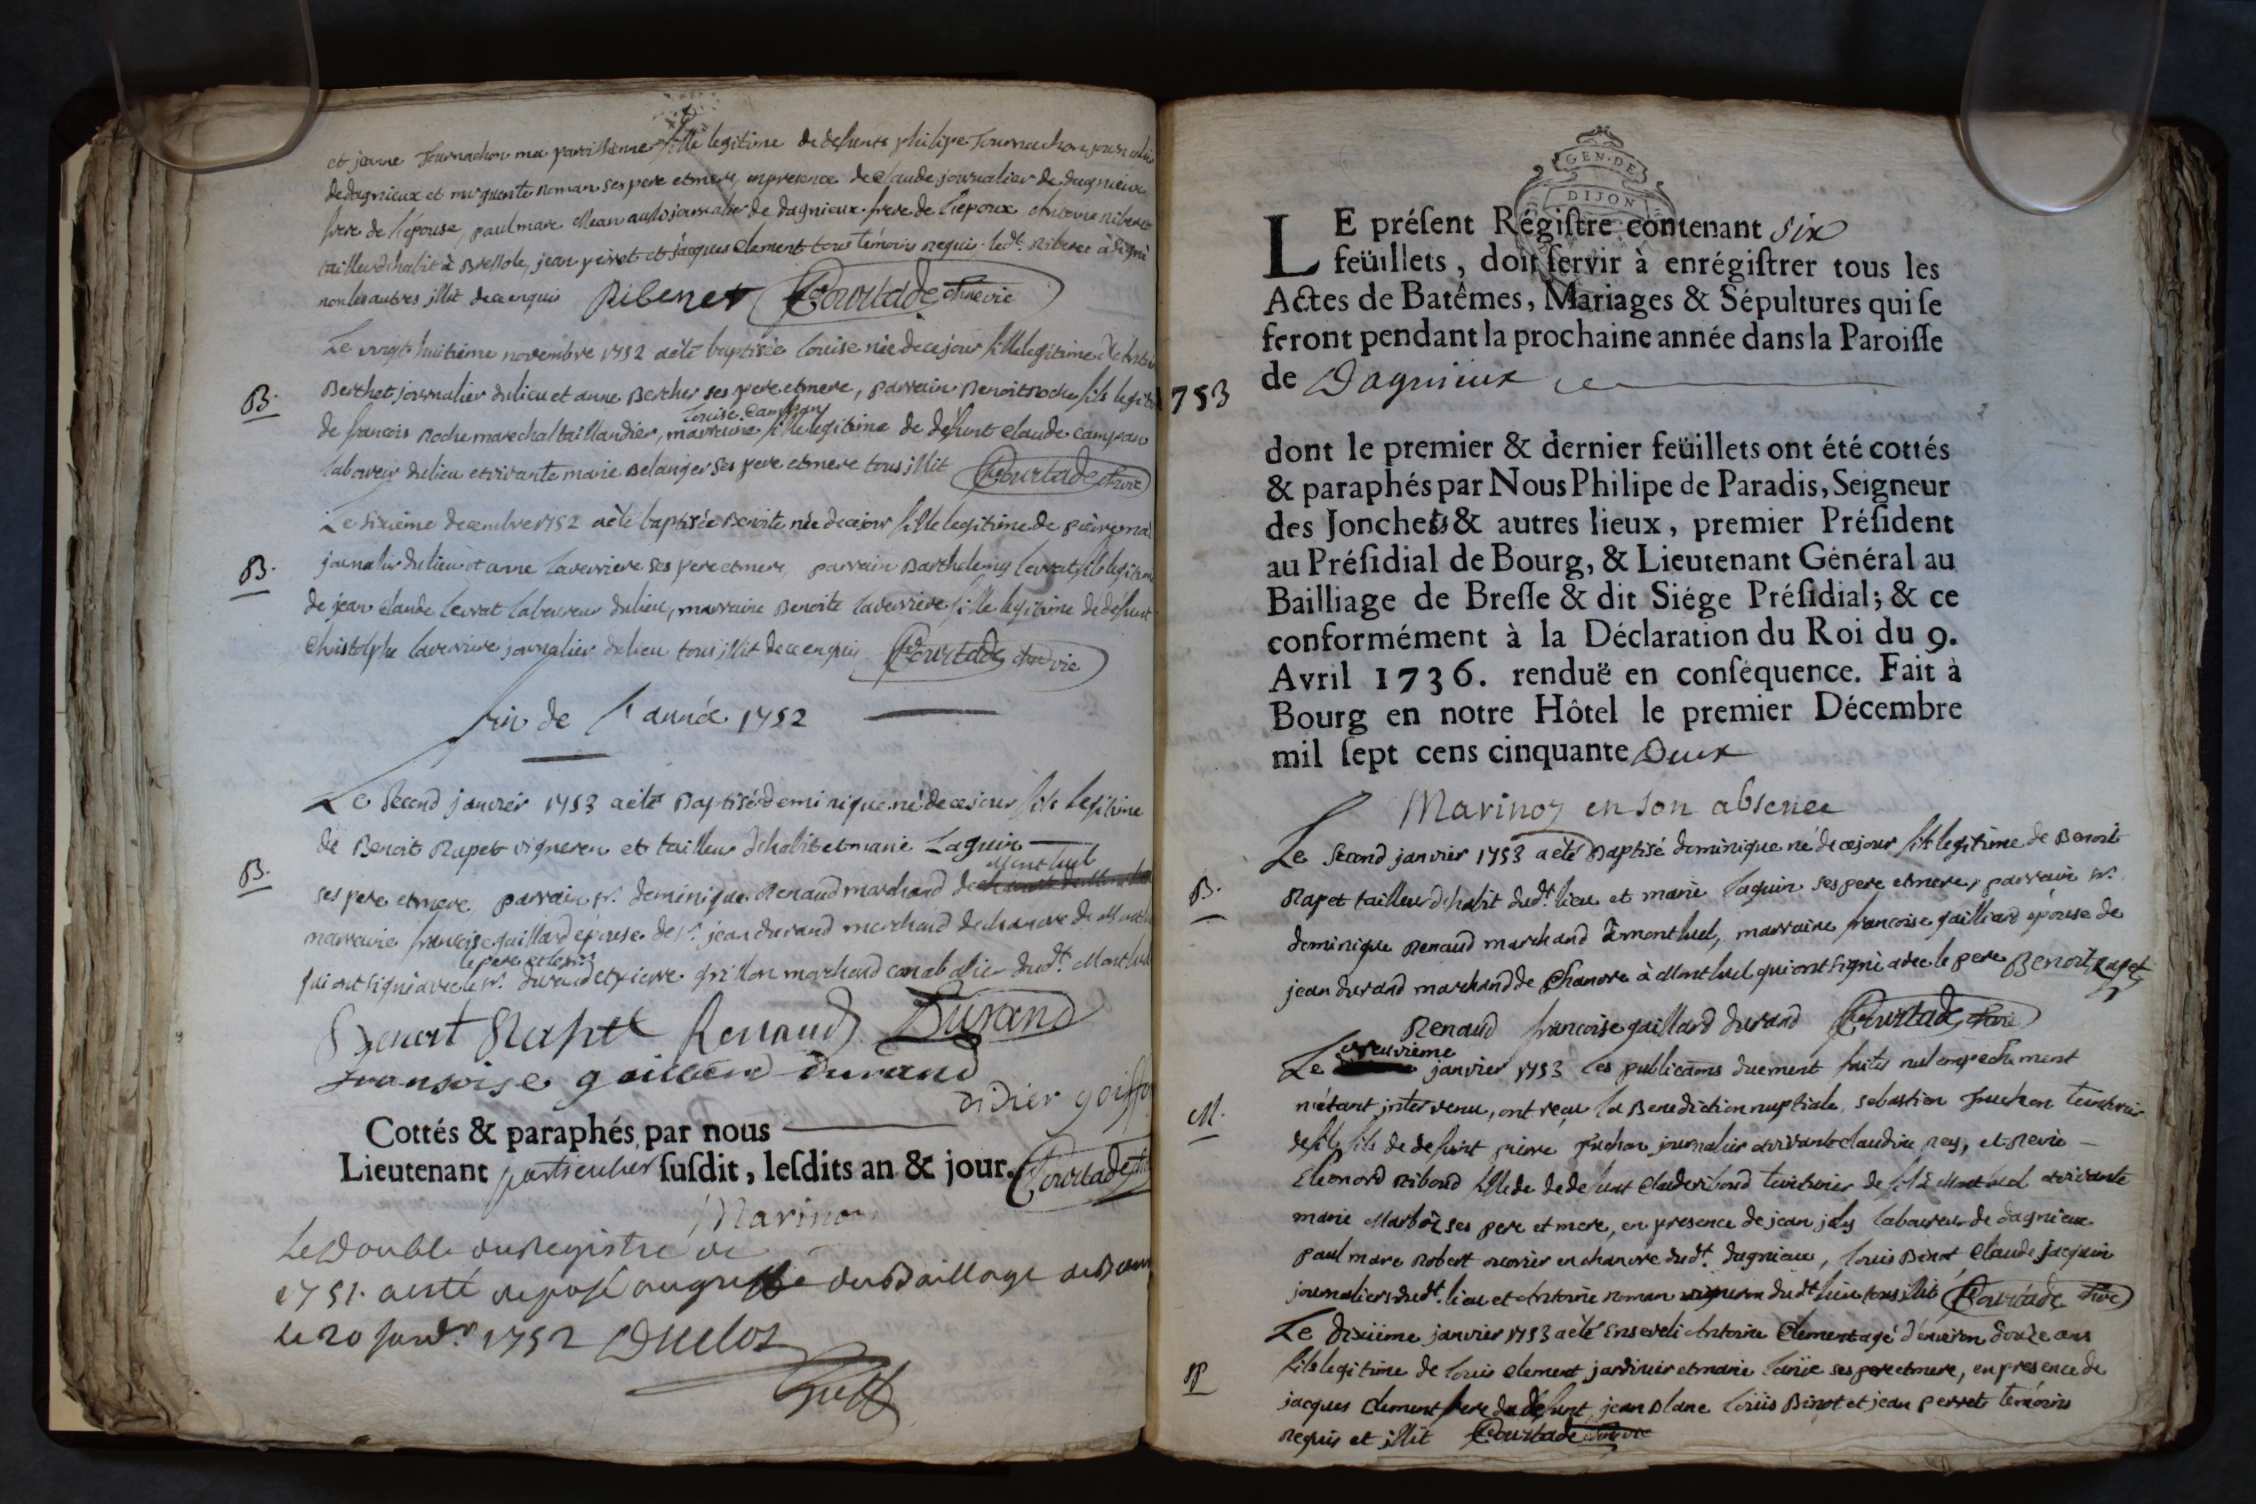 et jeanne Tournachon ma paroissienne fille legitime de defunts philipe Tournachon journalier
de dagnieux et marguerite Roman ses pere et mere, en presence de Claude journalier de dagnieux
frere de l'epouse, paul marc journalier de dagnieux frere de l'epoux Antoine Ribenet
tailleur d'habit à Bressole, jean peirot et jacques Clement tous témoins requis. ledt. Ribenet a signé
non les autres illit. de ce enquis Ribenet Courtade
Le vingt huitieme novembre 1752 a été baptisée Louise née de ce jour fille legitime d'Antoine
B.
Berthet journalier du lieu et anne Bercher ses pere et mere, parrain Benoit roche fils legit
Louise Campan
de francois Roche marechal taillandier, marraine fille legitime de defunt Claude Campan
laboureur du lieu et vivante marie Belanjer ses pere et mere tous illit Courtade
Le sixieme decembre 1752 a été baptisée Benoite née de ce jour fille legitime de pierre
B.
journalier du lieu et anne Laverriere ses pere et mere, parrain Barthelemy Levrat fils legitime
de jean claude Levrat laboureur du lieu, marraine Benoite Laverriere fille legitime de defunt
Christolphe Laverriere journalier du lieu tous illit de ce enquis Courtade
fin de l'année 1752
Le second janvier 1753 a été Baptisé deminique né de ce jour fils legitime
de Benoit Rapet vigneron et tailleur d'habit et marie Laguin
B.
Montluel
ses pere et mere. parrain sr. deminique Renaud marchand de
marraine françoise gaillard épouse de sr. jean durand marchand de chanvre de Montluel
le pere et les
qui ont signé avec sr. durand et pierre grillon marchand dudt. Montluel
Benoit Rapet Renaud Durand
fransoise gaillard durand
didier goiffo
Cottés & paraphés par nous
Lieutenant particulier susdit, lesdits an & jour. Courtade
Marinon
Le Double du Registre de
1751. a esté deposé au greffe du Baillage de
le 20 janvr. 1752 Duclos
Greff
GEN. DE
DIJON
LE présent Régistre contenant six
feüillets, doit servir à enrégistrer tous les
Actes de Batêmes, Mariages & Sépultures qui se
feront pendant la prochaine année dans la Paroisse
1753
de Dagnieux
dont le premier & dernier feüillets ont été cottés
& paraphés par Nous Philipe de Paradis, Seigneur
des Jonchets & autres lieux, premier Président
au Présidial de Bourg, & Lieutenant Général au
Bailliage de Bresse & dit Siége Présidial; & ce
conformément à la Déclaration du Roi du 9.
Avril 1736. renduë en conséquence. Fait à
Bourg en notre Hôtel le premier Décembre
mil sept cens cinquante Deux
Marinon en son absence
Le second janvier 1753 a eté Baptisé dominique né de ce jour fils legitime de Benoit
B.
Rapet tailleur d'habit dudt. lieu et marie Laguin ses pere et mere, parrain sr.
dominique Renaud marchand à montluel, marraine francoise gailliard épouse de
jean durand marchand de Chanvre à Montluel qui ont signé avec le pere Benoit Rapet
Renaud francoise gaillard durand Courtade
neuvieme
Le janvier 1753 les publications duement faites nul empechement
M.
n'étant intervenu, ont reçu la Benediction nuptiale sebastien
fils de defunt pierre journalier et vivante claudine Rey, et
Eleonord Ribond fille de defunt Claude Ribond et vivante
marie ses pere et mere, en presence de jean joly laboureur de dagnieux
paul marc Robert ouvrier en chanvre dudt. dagnieux, Louis Binot, Claude jacquin
journaliers dudt. lieu et Antoine Roman vigneron dudt lieu tous illit Courtade
Le dixiieme janvier 1753 a eté Enseveli Antoine Clement agé d'environ douze ans
fils legitime de Louis Clement jardinier et marie ses pere et mere, en presence de
jacques Clement frere du defunt jean Blanc Loüis Binot et jean perret témoins
requis et illit Courtade